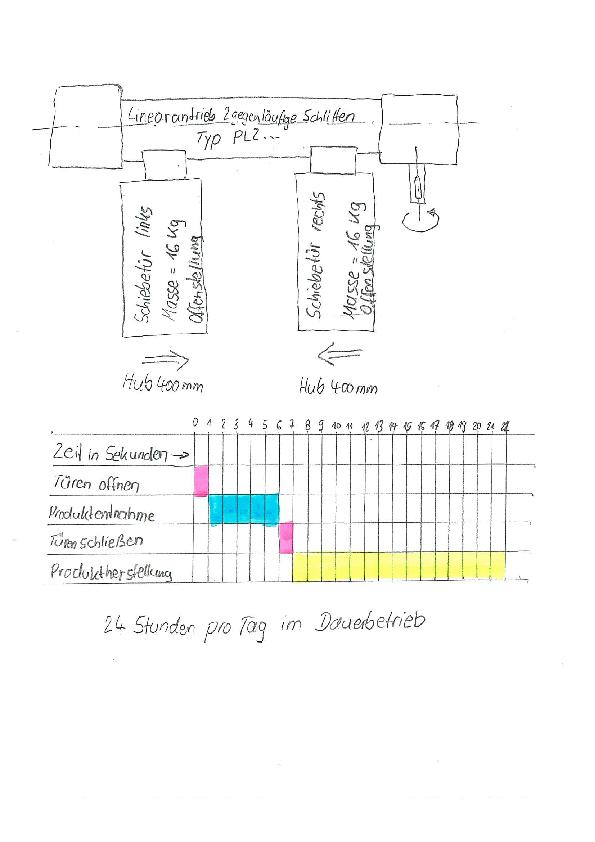 Linearantrieb 2 gegenläufige Schlitten
Typ PLZ...
Schiebetür links
Masse = 16 Kg
Offenstellung
Schiebetür rechts
Masse = 16 Kg
Offenstellung
Hub 400 mm
Hub 400 mm
0 1 2 3 4 5 6 7 8 9 10 11 12 13 14 15 16 17 18 19 20 21 22
Zeit in Sekunden →
Türen öffnen
Produktentnahme
Türen schließen
Produktherstellung
24 Stunden pro Tag im Dauerbetrieb